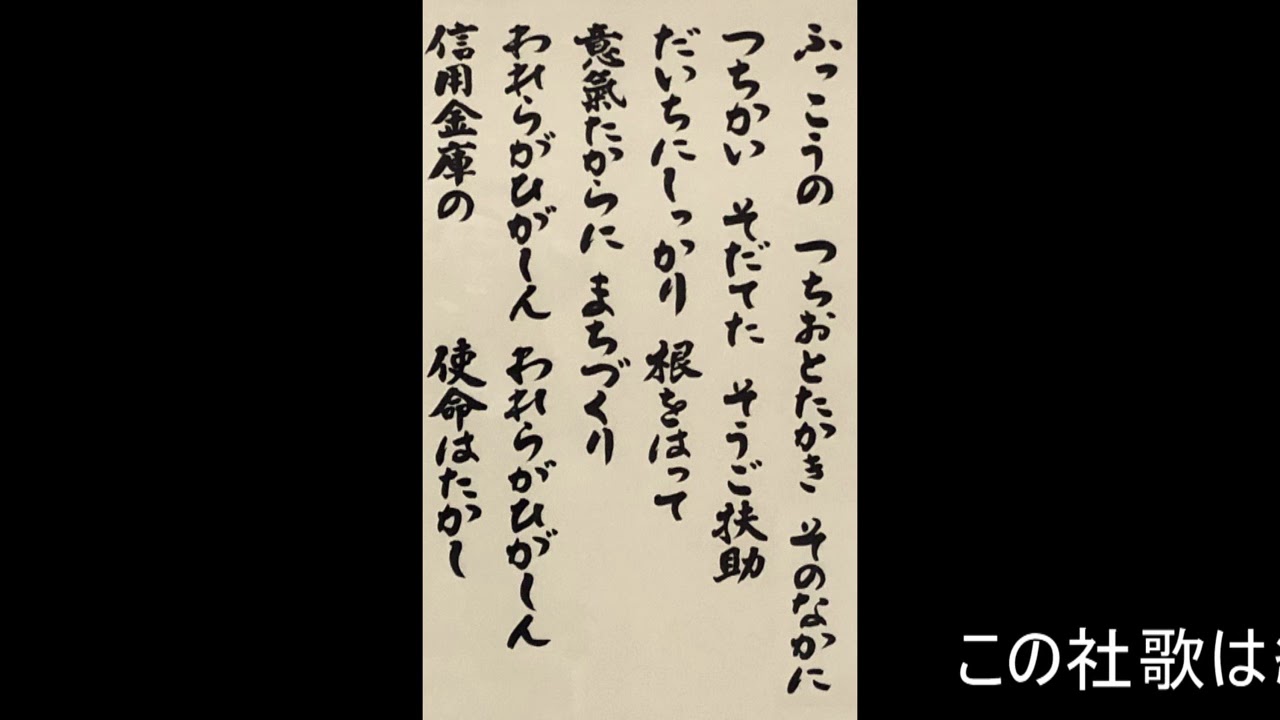 ふっこうの つちおとたかき そのなかに
つちかい そだてた そうご扶助
だいちにしっかり 根をはって
意氣たからに まちづくり
われらがひがしん われらがひがしん
信用金庫の 使命はたかし
この社歌は